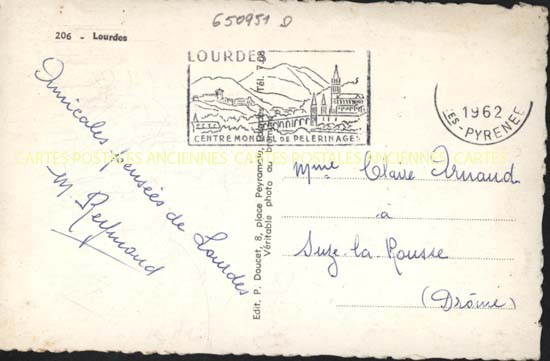 650951 D
206 - Lourdes
LOURDES
CENTRE MONDIAL DE PELERINAGES
1962
ES-PYRENEE
CARTES POSTALES ANCIENNES CARTES POSTALES ANCIENNES CARTES
Amicales pensées de Lourdes
M. Reymond
Edit. P. Doucet, 8, place Peyramale, Lourdes Tél. 7-58
Véritable photo au bromure
Mme Claire Arnaud
à
Suze-la-Rousse
(Drôme)